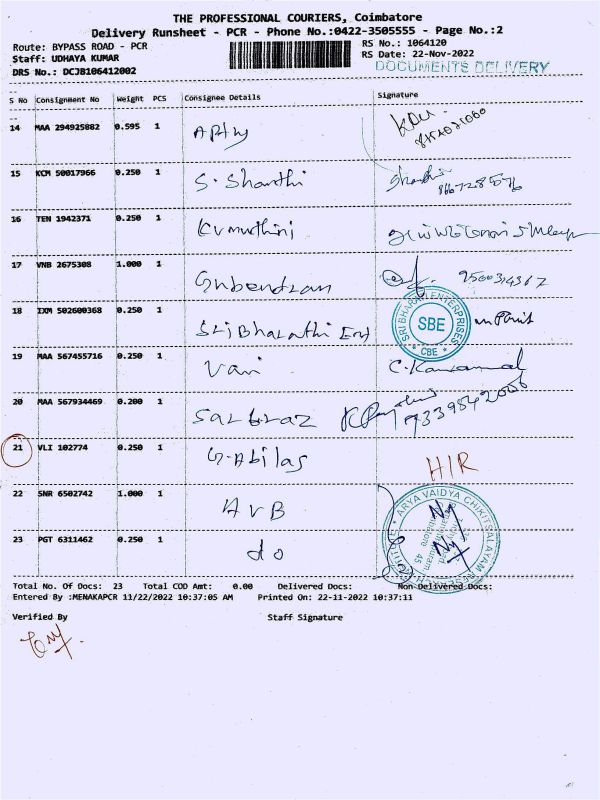 THE PROFESSIONAL COURIERS, Coimbatore
Delivery Runsheet - PCR - Phone No.:0422-3505555 - Page No.:2
Route: BYPASS ROAD - PCR
RS No.: 1064120
Staff: UDHAYA KUMAR
RS Date: 22-Nov-2022
DRS No.: DCJB106412002
DOCUMENTS DELIVERY
S No Consignment No Weight PCS Consignee Details Signature
14 MAA 294925882 0.595 1
15 KCM 50017966 0.250 1 S. Shanthi
16 TEN 1942371 0.250 1
17 VNB 2675308 1.000 1
18 IXM 502600368 0.250 1 Sri Bharathi Ent
SRI BHARATHI ENTERPRISES
SBE
* CBE *
19 MAA 567455716 0.250 1 Vani
20 MAA 567934469 0.200 1
21 VLI 102774 0.250 1 G. Abilas H/R
22 SNR 6502742 1.000 1 AVB
ARYA VAIDYA CHIKITSALAYAM
23 PGT 6311462 0.250 1 do
Total No. Of Docs: 23 Total COD Amt: 0.00 Delivered Docs: Non-Delivered Docs:
Entered By :MENAKAPCR 11/22/2022 10:37:05 AM Printed On: 22-11-2022 10:37:11
Verified By Staff Signature